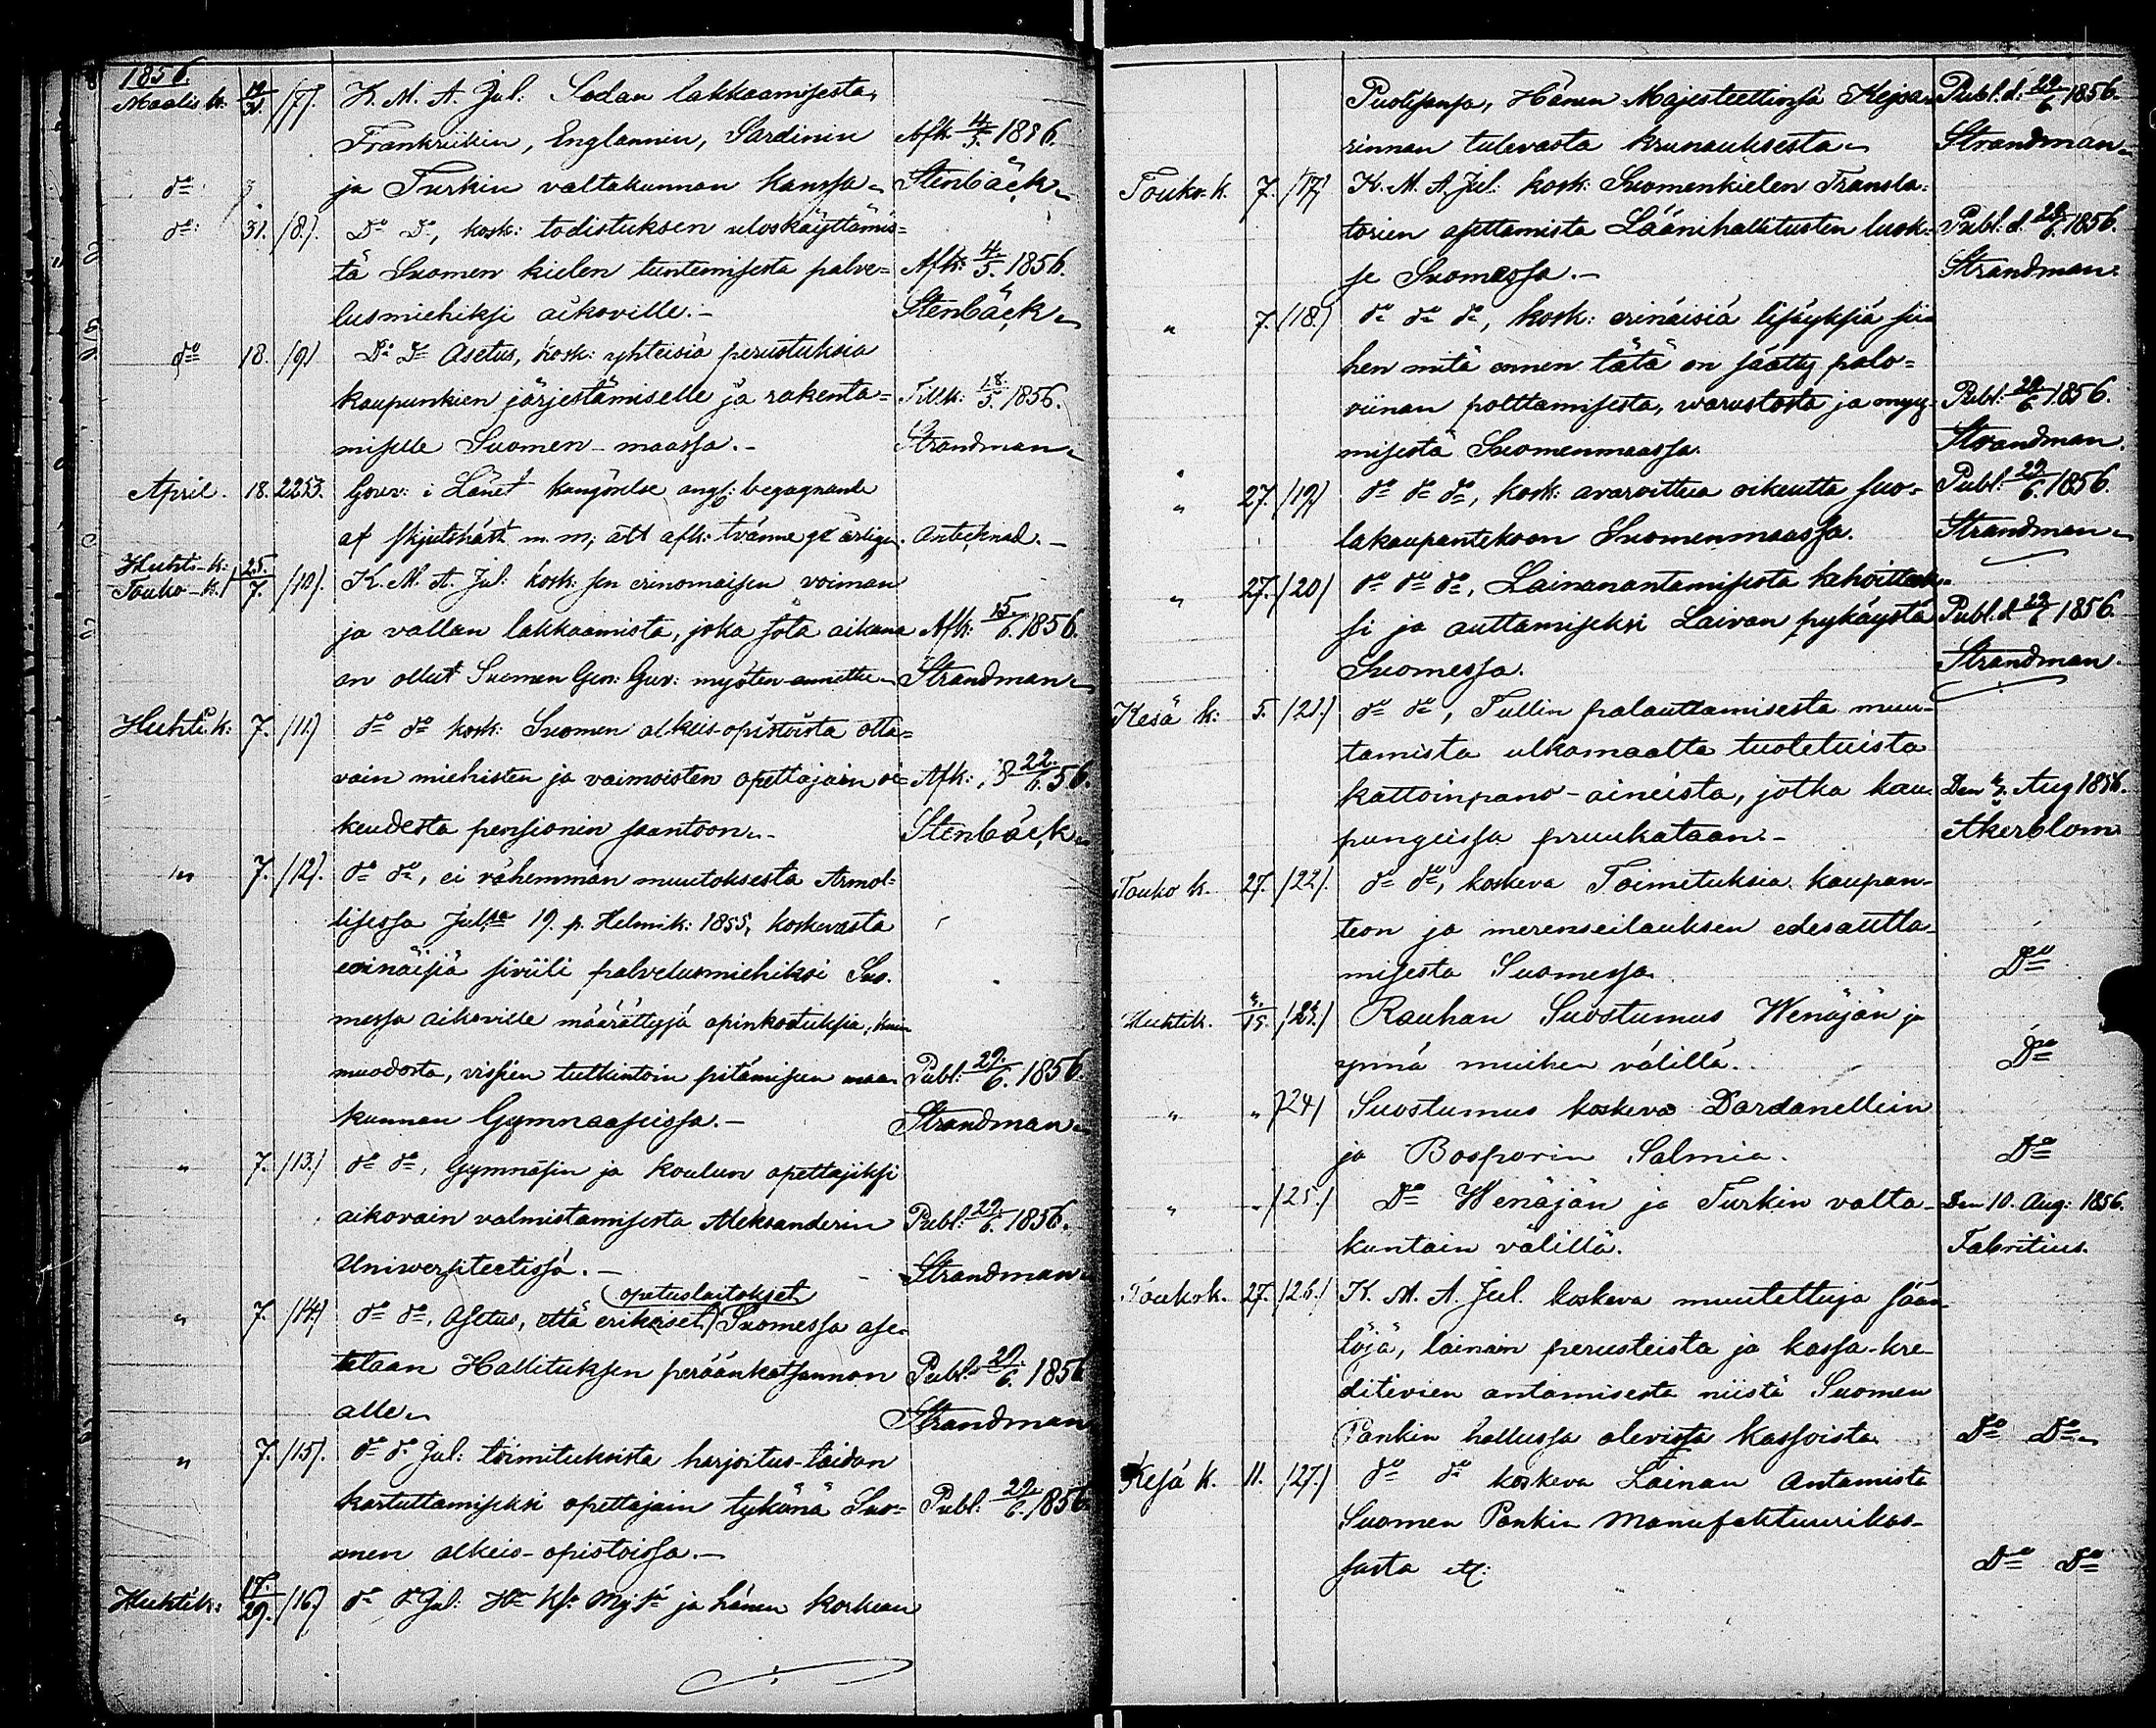 1856.
Maalis k. 19/31. /7). K. M. A. Jul: Sodan lakkaamisesta,
Frankriikin, Englannin, Sardinin Afk. 4/5. 1856.
do ja Turkin valtakunnan kanssa Stenbäck
do: 31. /8). Do Do, kosk: todistuksen uloskäyttämis=
tä Suomen kielen tuntemisesta palve= Afk: 4/5. 1856.
lusmiehiksi aikoville.- Stenbäck
do 18. /9) Do Do Asetus, kosk: yhteisiä perustuksia
kaupunkien järjestämiselle ja rakenta= Tillk: 18./5. 1856.
miselle Suomen-maassa.- Strandman
April. 18. 2253. Gouv: i Länet kungörelse ang: begagnande
af skjutshäst m. m; att afk: tvänne gr årligen. Antecknad.-
Huhti-k: Touko-k. 25./7. /10). K. M. A. Jul: kosk: sen erinomaisen voiman
ja vallan lakkaamista, joka sota aikana Afk: 15./6. 1856.
on ollut Suomen Gen: Guv: myöten-annettu Strandman
Huhti k: 7. /11.) do do kosk: Suomen alkeis-opistoista otta=
vain miehisten ja vaimoisten opettajain oi- Afk: 18 22./6. 56.
keudesta pensionin saantoon.- Stenbäck
" 7. /12). do do, ei vähemmän muutoksesta Armol=
lisessa Julssa 19. p. Helmik: 1855, koskevasta
erinäisiä siviili palvelusmiehiksi Suo.
messa aikoville määrättyjä opinkoetuksia, kuin
muodosta, vissien tutkintoin pitämiseen maa- Publ: 29./6. 1856.
kunnan Gymnaaseissa.- Strandman
" 7. /13.) do do, Gymnasin ja koulun opettajiksi
aikovain valmistamisesta Aleksanderin Publ: 29./6. 1856.
Uniwersiteetissä.- Strandman
opetuslaitokset
" 7. /14.) do do, Asetus, että erikoiset Suomessa ase-
tetaan Hallituksen peräänkatsannon Publ: 29./6. 1856
alle Strandman
" 7. /15). do do Jul: toimituksista harjoitus-taidon
kartuttamiseksi opettajain tykönä Suo= Publ: 29./6. 1856
men alkeis-opistoissa.-
Huhtik: 17./29. /16.) do do Jul: Hn Ks: Mjstä ja hänen korkean
Puolisonsa, Hänen Majesteettinsä Keisa- Publ. d: 29/6 1856.
rinnan tulevasta krunauksesta Strandman
Touko. k. 7. /17) K. M. A. Jul: kosk: Suomenkielen Transla=
torien asettamista Läänihallitusten luok- Publ: d. 29/6. 1856.
se Suomessa.- Strandman
" 7. /18.) do do do, kosk: erinäisiä lisäyksiä sii-
hen mitä ennen tätä on säätty palo=
viinan polttamisesta, warustosta ja myy- Publ: 29/6 1856.
misestä Suomenmaassa. Strandman.
" 27. /19) do do do, kosk: avaroittua oikeutta suo= Publ: 29/6. 1856.
lakaupantekoon Suomenmaassa. Strandman
" 27. /20) do do do, Lainanantamisesta kehoittak-
si ja auttamiseksi Laivan pykäystä Publ. d 29/6 1856.
Suomessa. Strandman.
Kesä k: 5. /21.) do do, Tullin palauttamisesta muu-
tamista ulkomaalta tuoletuista
kattoinpano-aineista, jotka kau- Den 3. Aug 1856.
pungeissa pruukataan.- Åkerblom
Touko k. 27. /22). do do, koskeva Toimituksia kaupan-
teon ja merenseilauksen edesautta-
misesta Suomessa. Do
Huhtik. 15. /23.) Rauhan Suostumus Wenäjän ja
ynnä muiden välillä. Do
" " /24) Suostumus koskeva Dardanellein
ja Bosporin Salmia. Do
" " /25.) Do Wenäjän ja Turkin valta- Den 10. Aug: 1856.
kuntain välillä. Fabritius.
Toukok. 27. /26.) K. M. A. Jul. koskeva muutettuja sään-
töjä, lainain perusteista ja kassa-kre-
ditivien antamisesta niistä Suomen
Pankin hallussa olevista kassoista Do Do
Kesä k. 11. /27.) do do koskeva Lainan Antamista
Suomen Pankin Manufaktuurikas-
sasta etc: Do Do